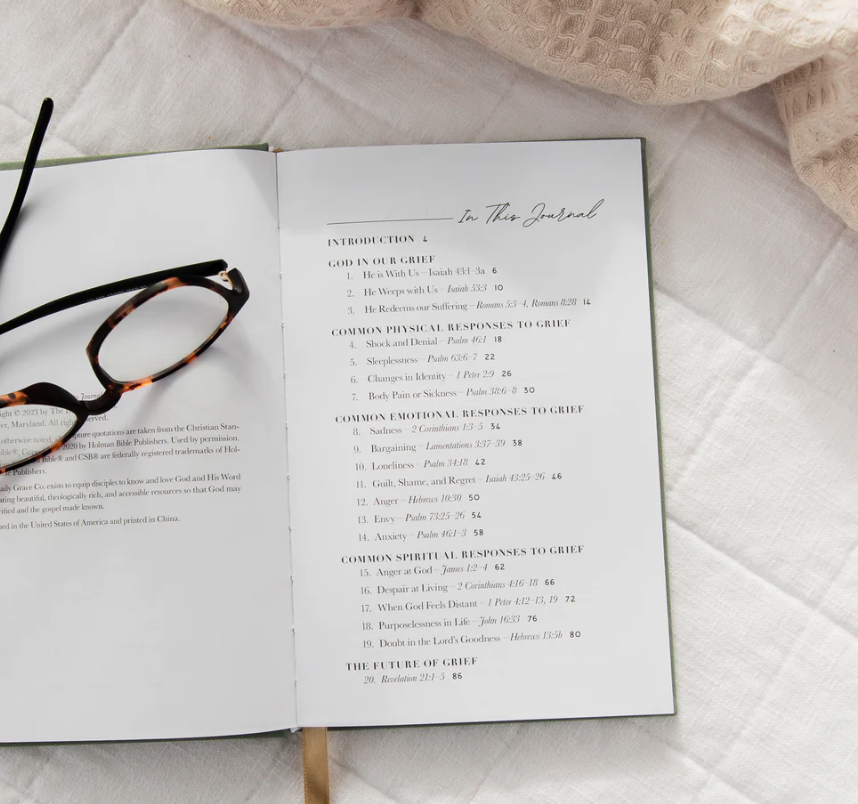 Journ
ight © 2023 by The D
er, Maryland. All righ erved.
otherwise noted, pture quotations are taken from the Christian Stan-
ible®, Co 2020 by Holman Bible Publishers. Used by permission.
Bible® and CSB® are federally registered trademarks of Hol-
Publishers.
aily Grace Co. exists to equip disciples to know and love God and His Word
ting beautiful, theologically rich, and accessible resources so that God may
rified and the gospel made known.
ed in the United States of America and printed in China.
In This Journal
INTRODUCTION 4
GOD IN OUR GRIEF
1. He is With Us – Isaiah 43:1–3a 6
2. He Weeps with Us – Isaiah 53:3 10
3. He Redeems our Suffering – Romans 5:3–4, Romans 8:28 14
COMMON PHYSICAL RESPONSES TO GRIEF
4. Shock and Denial – Psalm 46:1 18
5. Sleeplessness – Psalm 63:6–7 22
6. Changes in Identity – 1 Peter 2:9 26
7. Body Pain or Sickness – Psalm 38:6–8 30
COMMON EMOTIONAL RESPONSES TO GRIEF
8. Sadness – 2 Corinthians 1:3–5 34
9. Bargaining – Lamentations 3:37–39 38
10. Loneliness – Psalm 34:18 42
11. Guilt, Shame, and Regret – Isaiah 43:25–26 46
12. Anger – Hebrews 10:30 50
13. Envy – Psalm 73:25–26 54
14. Anxiety – Psalm 46:1–3 58
COMMON SPIRITUAL RESPONSES TO GRIEF
15. Anger at God – James 1:2–4 62
16. Despair at Living – 2 Corinthians 4:16–18 66
17. When God Feels Distant – 1 Peter 4:12–13, 19 72
18. Purposelessness in Life – John 16:33 76
19. Doubt in the Lord's Goodness – Hebrews 13:5b 80
THE FUTURE OF GRIEF
20. Revelation 21:1–5 86